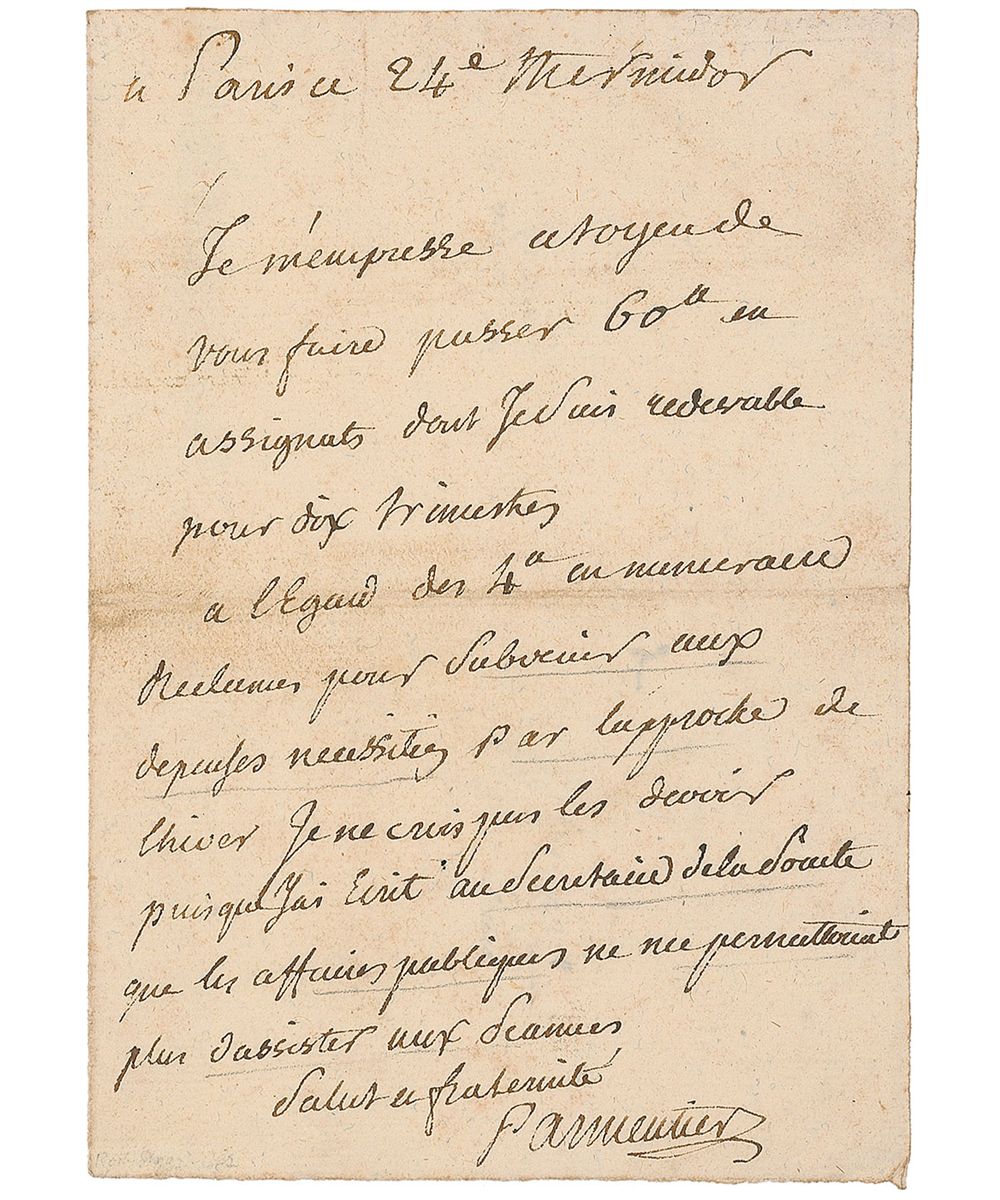 a Paris ce 24e Thermidor
Je m'empresse citoyen de
vous faire passer 60tt en
assignats dont Je suis redevable
pour dix trimestres
a l'Egard des 4tt en numeraire
Reclamés pour subvenir aux
depenses necessitées par lapproche de
lhiver Je ne crois pas les devoir
puisque J'ai Ecrit au Secretaire de la Société
que les affaires publiques ne me permettoient
plus dassister aux Seances
Salut et fraternité
Parmentier